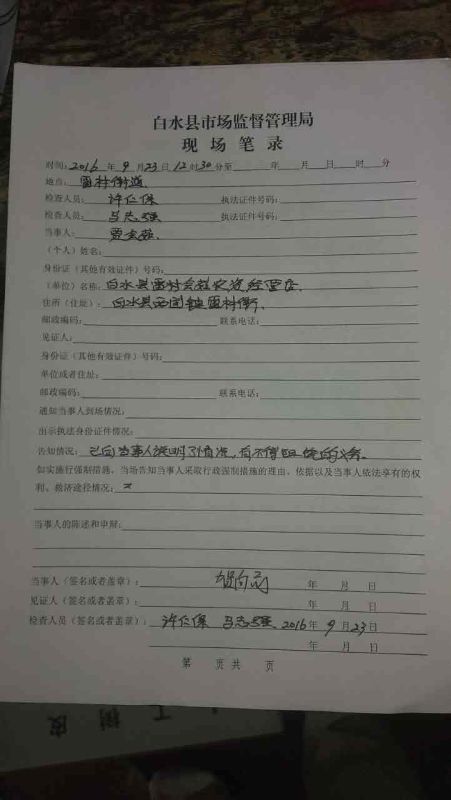 白水县市场监督管理局
现场笔录
时间：2016年9月23日12时30分至 年 月 日 时 分
地点：雷村街道
检查人员：许仁保 执法证件号码：
检查人员：马志强 执法证件号码：
当事人：贾
（个人）姓名：
身份证（其他有效证件）号码：
（单位）名称：白水县雷村 农资经营店
住所（住址）：白水县西固镇雷村街
邮政编码： 联系电话：
见证人：
身份证（其他有效证件）号码：
单位或者住址：
邮政编码： 联系电话：
通知当事人到场情况：
出示执法身份证件情况：
告知情况：已向当事人说明了情况，有不得 的义务。
如实施行强制措施，当场告知当事人采取行政强制措施的理由、依据以及当事人依法享有的权
利、救济途径情况：
当事人的陈述和申辩：
当事人（签名或者盖章）： 年 月 日
见证人（签名或者盖章）： 年 月 日
检查人员（签名或者盖章）：许仁保 马志强 2016年9月23日
年 月 日
第 页共 页
工 树 皮